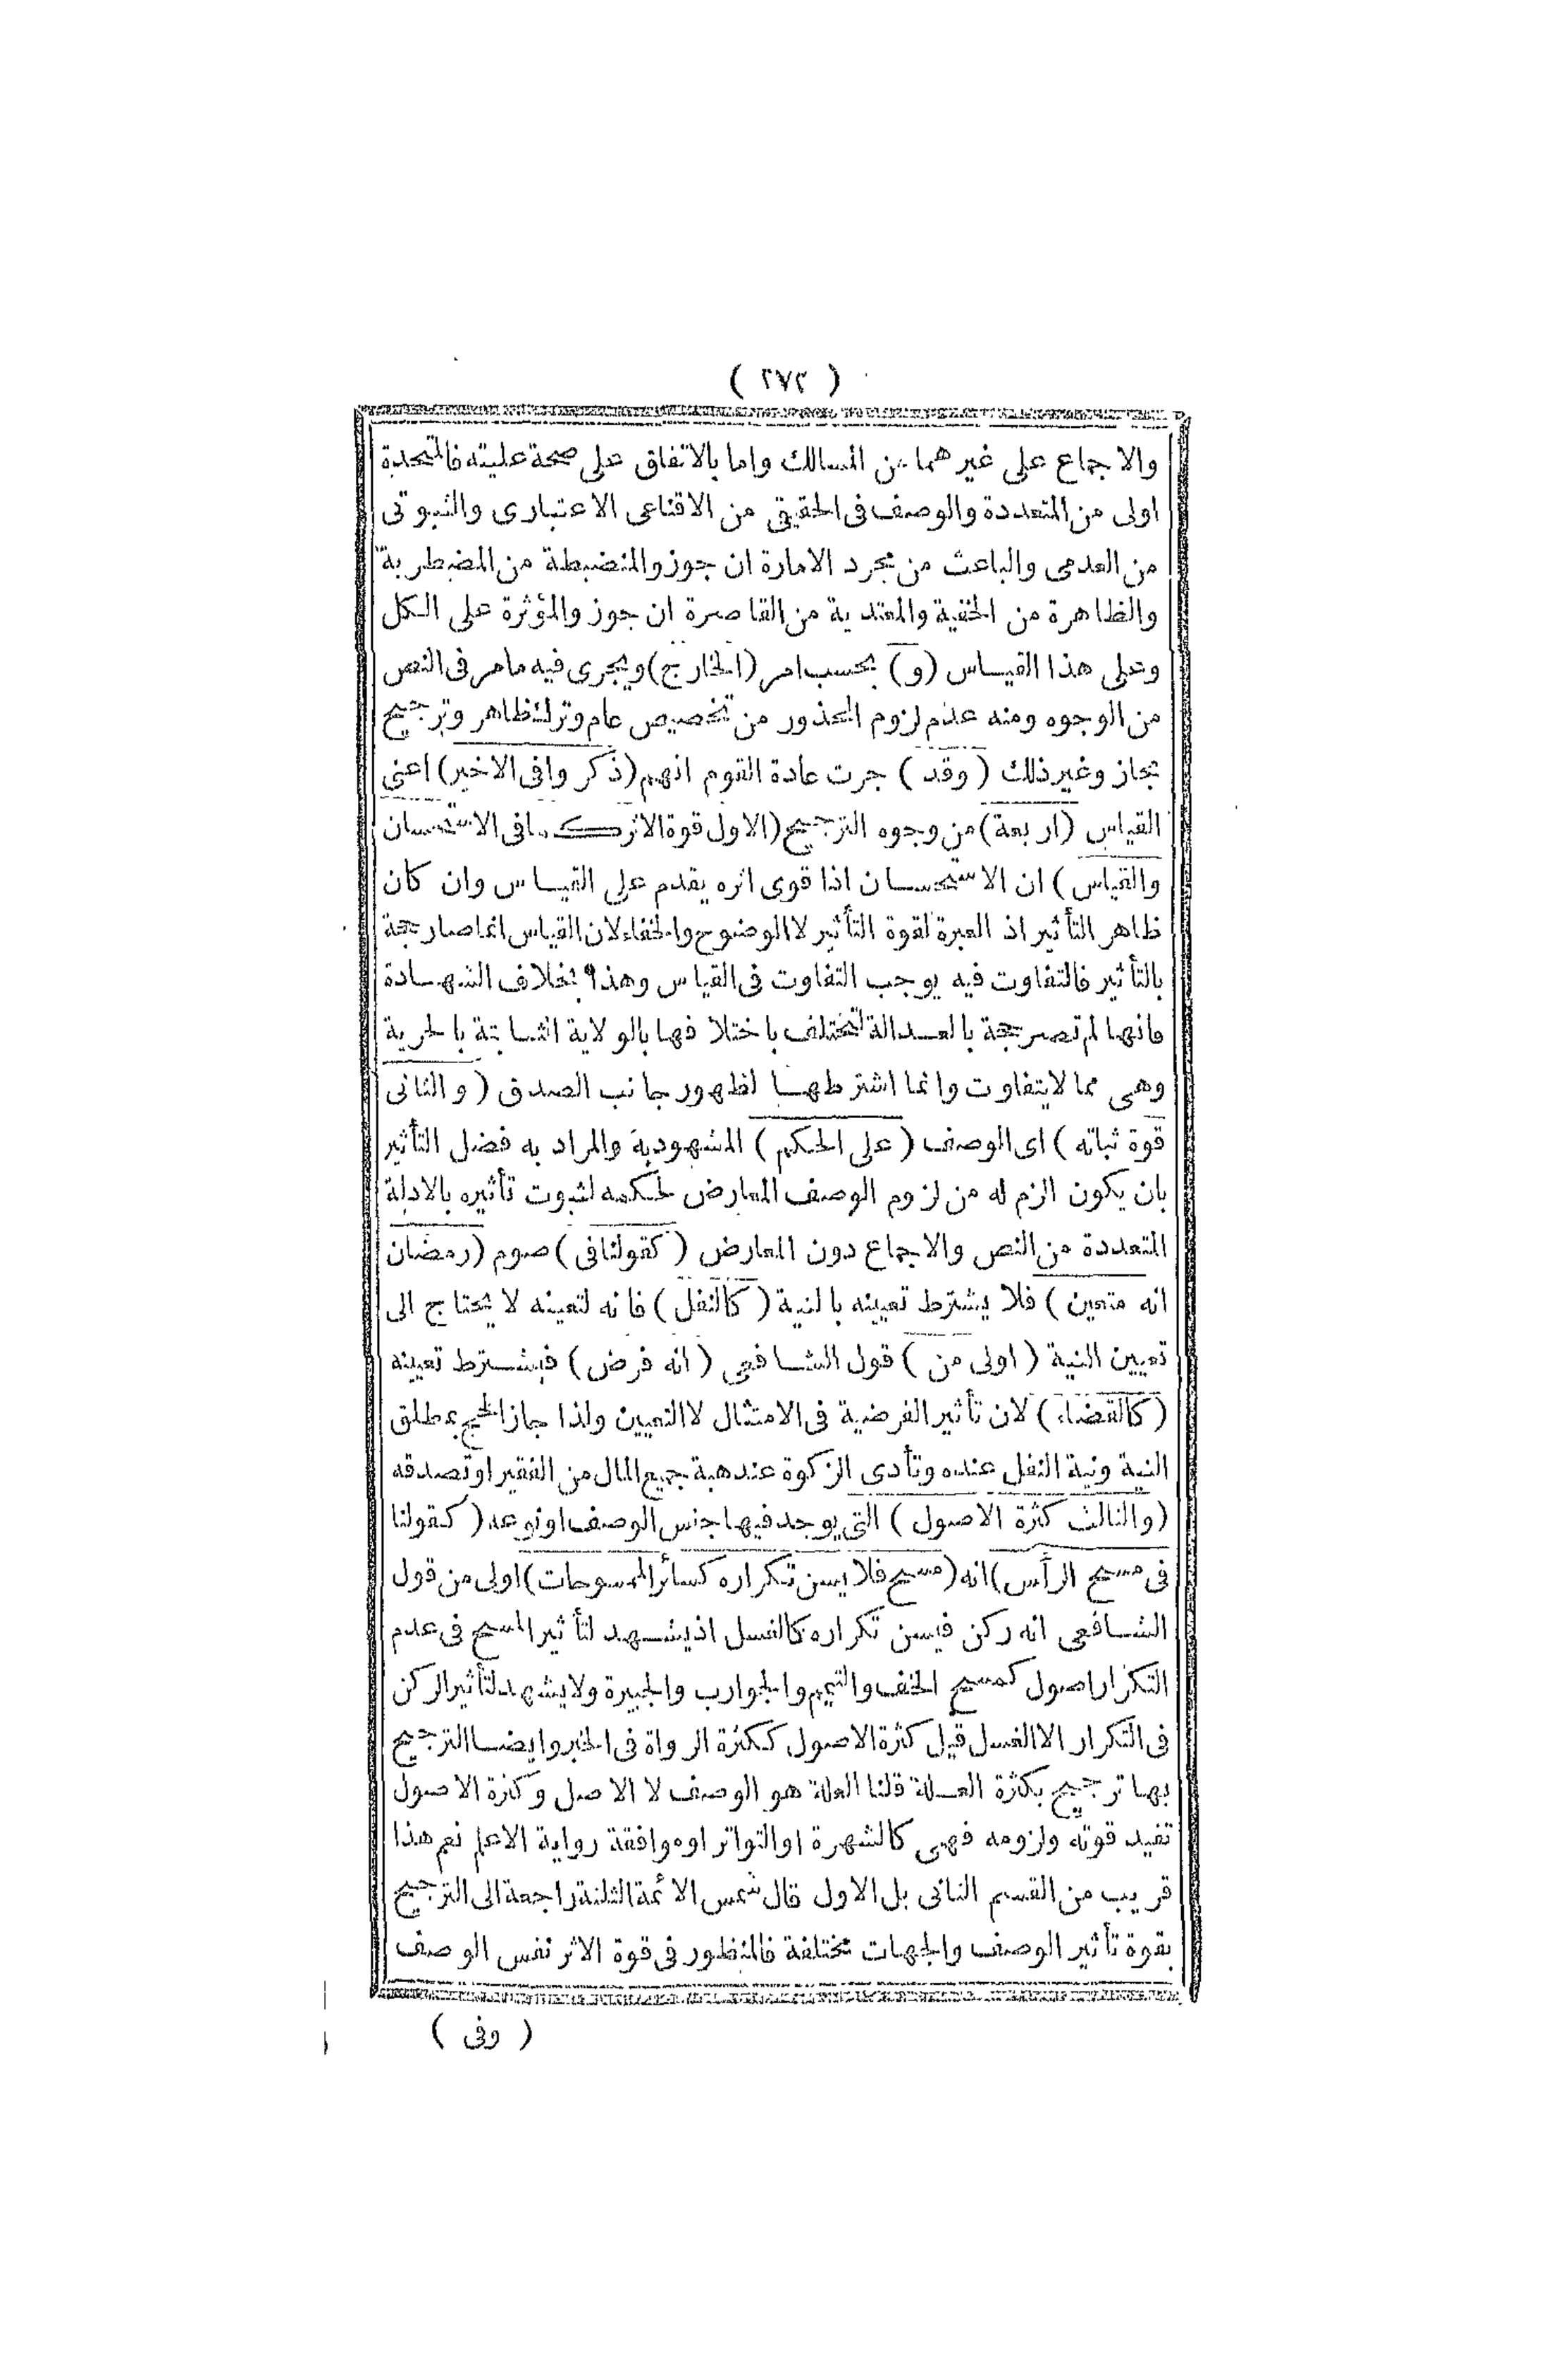 ( ٢٧٢ )
والاجماع على غيرهما من المسالك واما بالاتفاق على صحة عليته فالمتحدة
اولى من المتعددة والوصف فى الحقيقى من الاقناعى الاعتبارى والثبوتى
من العدمى والباعث من مجرد الامارة ان جوز والمنضبطة من المضطربة
والظاهرة من الخفية والمتعدية من القاصرة ان جوز والمؤثرة على الكل
وعلى هذا القياس (و) بحسب امر (الخارج) ويجرى فيه مامر فى النص
من الوجوه ومنه عدم لزوم المحذور من تخصيص عام وترك ظاهر وترجيح
مجاز وغير ذلك (وقد) جرت عادة القوم انهم (ذكروا فى الاخير) اعنى
القياس (اربعة) من وجوه الترجيح (الاول قوة الاثر كما فى الاستحسان
والقياس) ان الاستحسان اذا قوى اثره يقدم على القياس وان كان
ظاهر التأثير اذ العبرة لقوة التأثير لا الوضوح والخفاء لان القياس انما صار حجة
بالتأثير فالتفاوت فيه يوجب التفاوت فى القياس وهذا ٩ بخلاف الشهادة
فانها لم تصر حجة بالعدالة لتختلف باختلافها بالولاية الثابتة بالحرية
وهى مما لايتفاوت وانما اشترطها لظهور جانب الصدق (والثانى
قوة ثباته) اى الوصف (على الحكم) المشهود به والمراد به فضل التأثير
بان يكون الزم له من لزوم الوصف المعارض لحكمه لثبوت تأثيره بالادلة
المتعددة من النص والاجماع دون المعارض (كقولنا فى) صوم (رمضان
انه متعين) فلا يشترط تعيينه بالنية (كالنفل) فانه لتعينه لا يحتاج الى
تعيين النية (اولى من) قول الشافعى (انه فرض) فيشترط تعيينه
(كالقضاء) لان تأثير الفرضية فى الامتثال لا التعيين ولذا جاز الحج بمطلق
النية ونية النفل عنده وتأدى الزكوة عند هبة جميع المال من الفقير او تصدقه
(والثالث كثرة الاصول) التى يوجد فيها جنس الوصف او نوعه (كقولنا
فى مسح الرأس) انه (مسح فلا يسن تكراره كسائر الممسوحات) اولى من قول
الشافعى انه ركن فيسن تكراره كالغسل اذ يشهد لتأثير المسح فى عدم
التكرار اصول كمسح الخف والتيمم والجوارب والجبيرة ولا يشهد لتأثير الركن
فى التكرار الا الغسل قيل كثرة الاصول ككثرة الرواة فى الخبر وايضا الترجيح
بها ترجيح بكثرة العلة قلنا العلة هو الوصف لا الاصل وكثرة الاصول
تفيد قوته ولزومه فهى كالشهرة او التواتر او موافقة رواية الاعلم نعم هذا
قريب من القسم الثانى بل الاول قال شمس الائمة الثلثة راجعة الى الترجيح
بقوة تأثير الوصف والجهات مختلفة فالمنظور فى قوة الاثر نفس الوصف
( وفى )